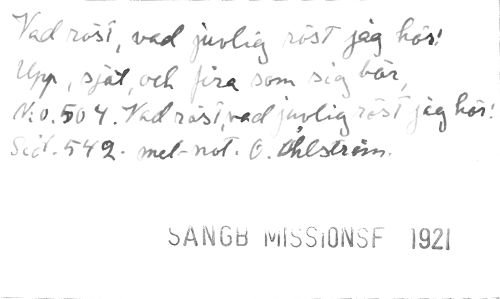 Vad röst, vad juvlig röst jag hör!
Upp, själ, och fira som sig bör,
N:o. 504. Vad röst, vad juvlig röst jag hör!
Sid. 542. mel-not. O. Åhlström.
SANGB MISSIONSF 1921